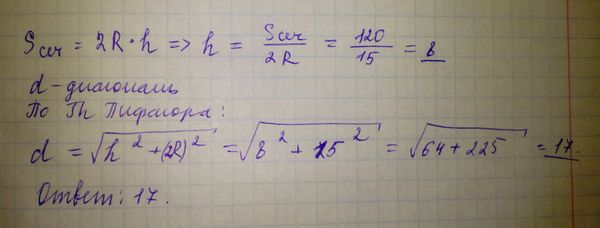 Sсеч = 2R · h => h = Sсеч / 2R = 120 / 15 = 8
d - диагональ
По Th Пифагора:
d = √(h² + (2R)²) = √(8² + 15²) = √(64 + 225) = 17.
Ответ: 17.